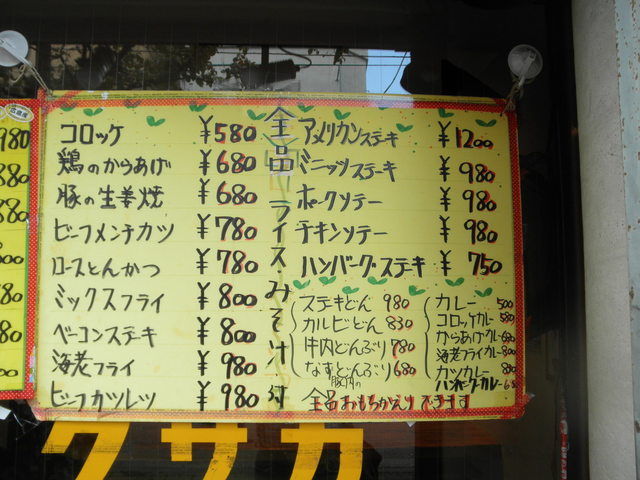 コロッケ ¥580
鶏のからあげ ¥680
豚の生姜焼 ¥680
ビーフメンチカツ ¥780
ロースとんかつ ¥780
ミックスフライ ¥800
ベーコンステーキ ¥800
海老フライ ¥980
ビーフカツレツ ¥980
全品ライス・みそ汁付
アメリカンステーキ ¥1200
ミニッツステーキ ¥980
ポークソテー ¥980
チキンソテー ¥980
ハンバーグ・ステーキ ¥750
ステーキどん 980
カルビどん 830
牛肉どんぶり 780
なすどんぶり 680
豚肉の
カレー 500
コロッケカレー 580
からあげカレー
海老フライカレー 800
カツカレー
ハンバーグカレー
全品おもちかえりできます
980
クサカ